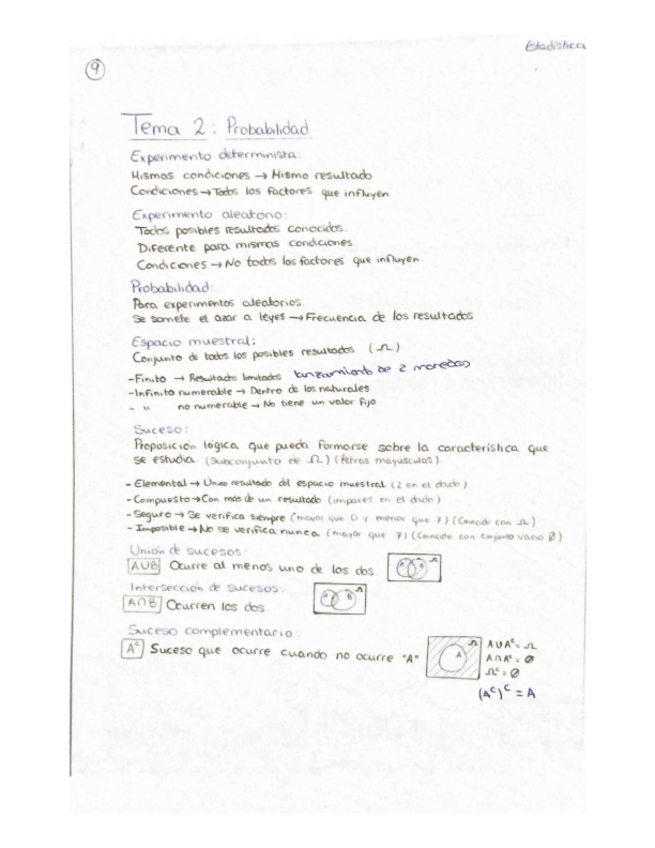 Estadística
9
Tema 2: Probabilidad
Experimento determinista:
Mismas condiciones → Mismo resultado
Condiciones → Todos los factores que influyen
Experimento aleatorio:
Todos posibles resultados conocidos.
Diferente para mismas condiciones
Condiciones → No todos los factores que influyen
Probabilidad:
Para experimentos aleatorios.
Se somete el azar a leyes → Frecuencia de los resultados
Espacio muestral:
Conjunto de todos los posibles resultados (Ω)
- Finito → Resultados limitados lanzamiento de 2 monedas
- Infinito numerable → Dentro de los naturales
- " no numerable → No tiene un valor fijo
Suceso:
Proposición lógica que pueda formarse sobre la característica que
se estudia. (Subconjunto de Ω) (letras mayúsculas)
- Elemental → Único resultado del espacio muestral (2 en el dado)
- Compuesto → Con más de un resultado (impares en el dado)
- Seguro → Se verifica siempre (mayor que 0 y menor que 7) (Coincide con Ω)
- Imposible → No se verifica nunca (mayor que 7) (Coincide con conjunto vacío Ø)
Unión de sucesos:
A∪B Ocurre al menos uno de los dos
Intersección de sucesos:
A∩B Ocurren los dos.
Suceso complementario:
Aᶜ Suceso que ocurre cuando no ocurre "A"
A Ω
A∪Aᶜ = Ω
A∩Aᶜ = Ø
Ωᶜ = Ø
(Aᶜ)ᶜ = A